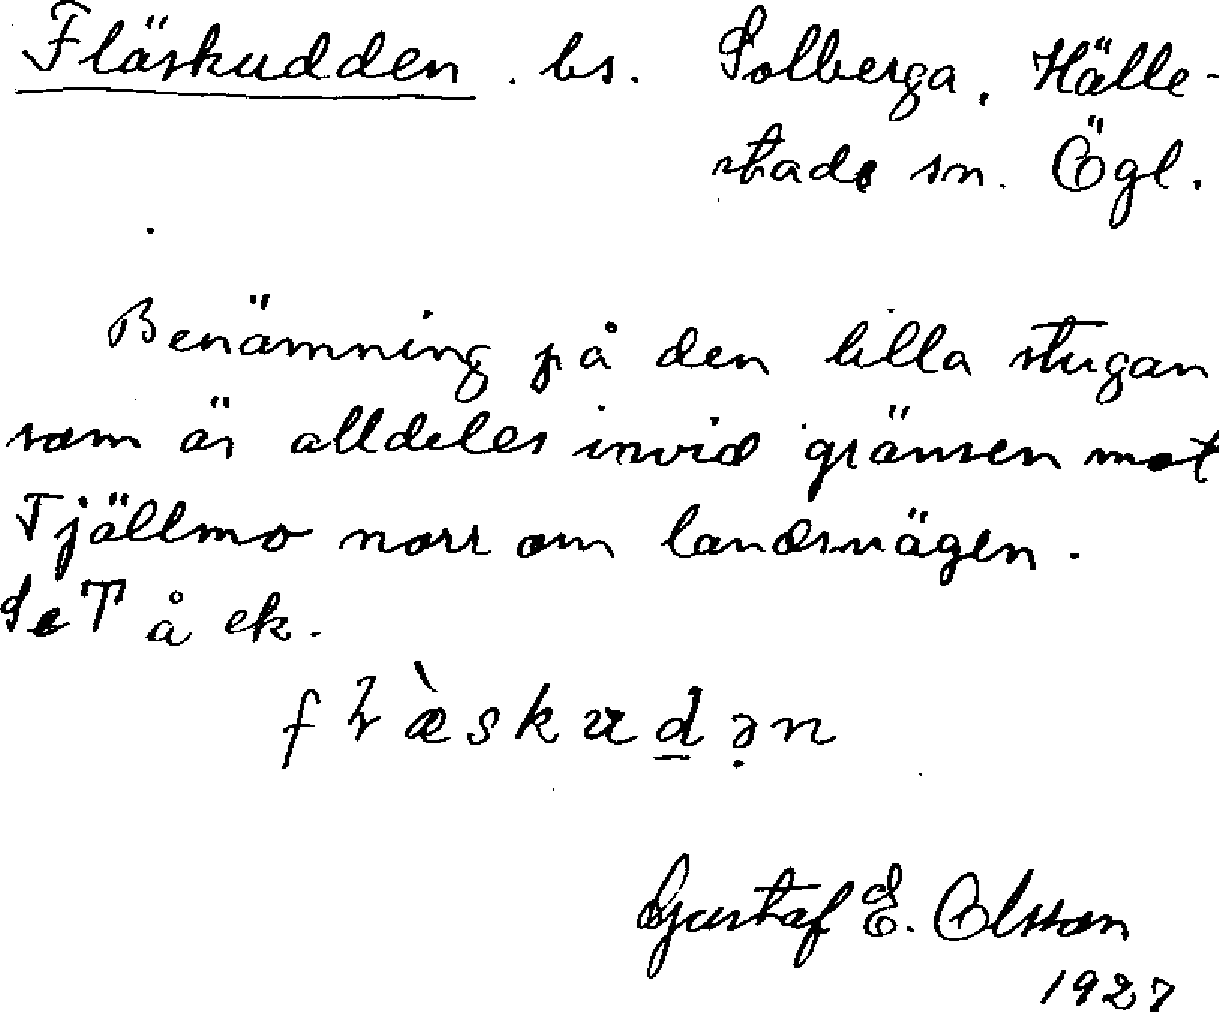 Fläskudden. bs. Solberga, Hälle-
stads sn. Ögl.
Benämning på den lilla stugan
som är alldeles invid gränsen mot
Tjällmo norr om landsvägen.
Se T å ek.
fłæ̀skud̲ə̣n
Gustaf E. Olsson
1927